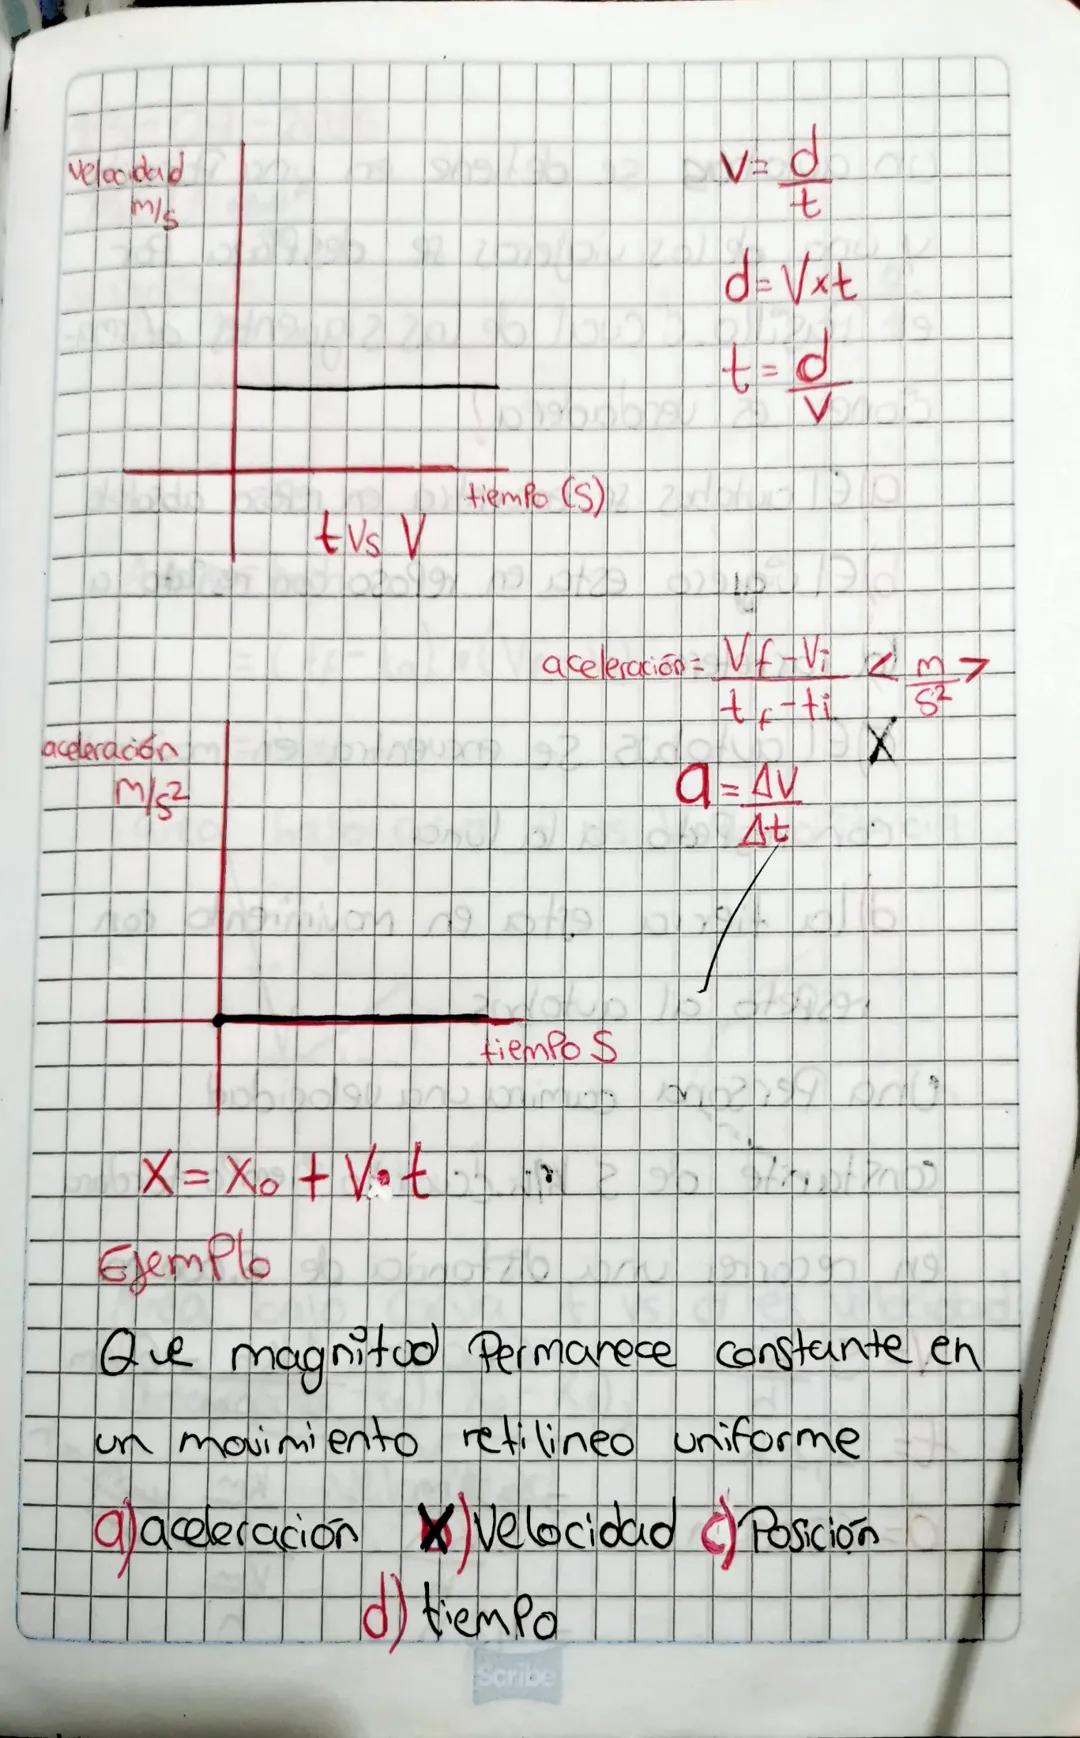 velocidad
m/s
V= d/t
d= Vxt
t= d/v
tiempo (s)
t Vs V
aceleración= Vf-Vi/tf-ti < m/s² >
X
aceleración
m/s²
a= ΔV/Δt
tiempo S
X= X₀ + V•t
Ejemplo
Que magnitud Permanece constante en
un movimiento retilineo uniforme
a) aceleración X) Velocidad c) Posición
d) tiempo
Scribe